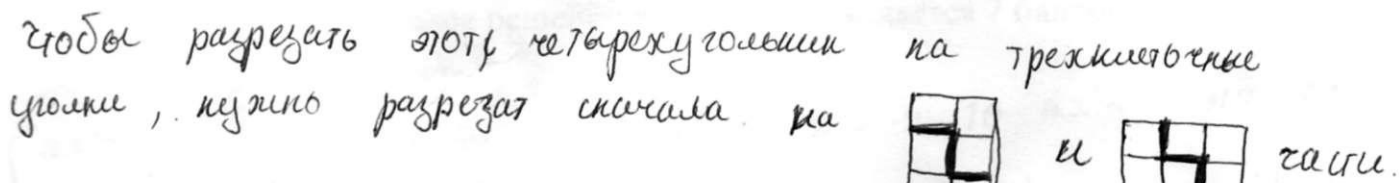 чтобы разрезать этоту четырехугольник на трехклеточные
уголки, нужно разрезат сначала на и части.